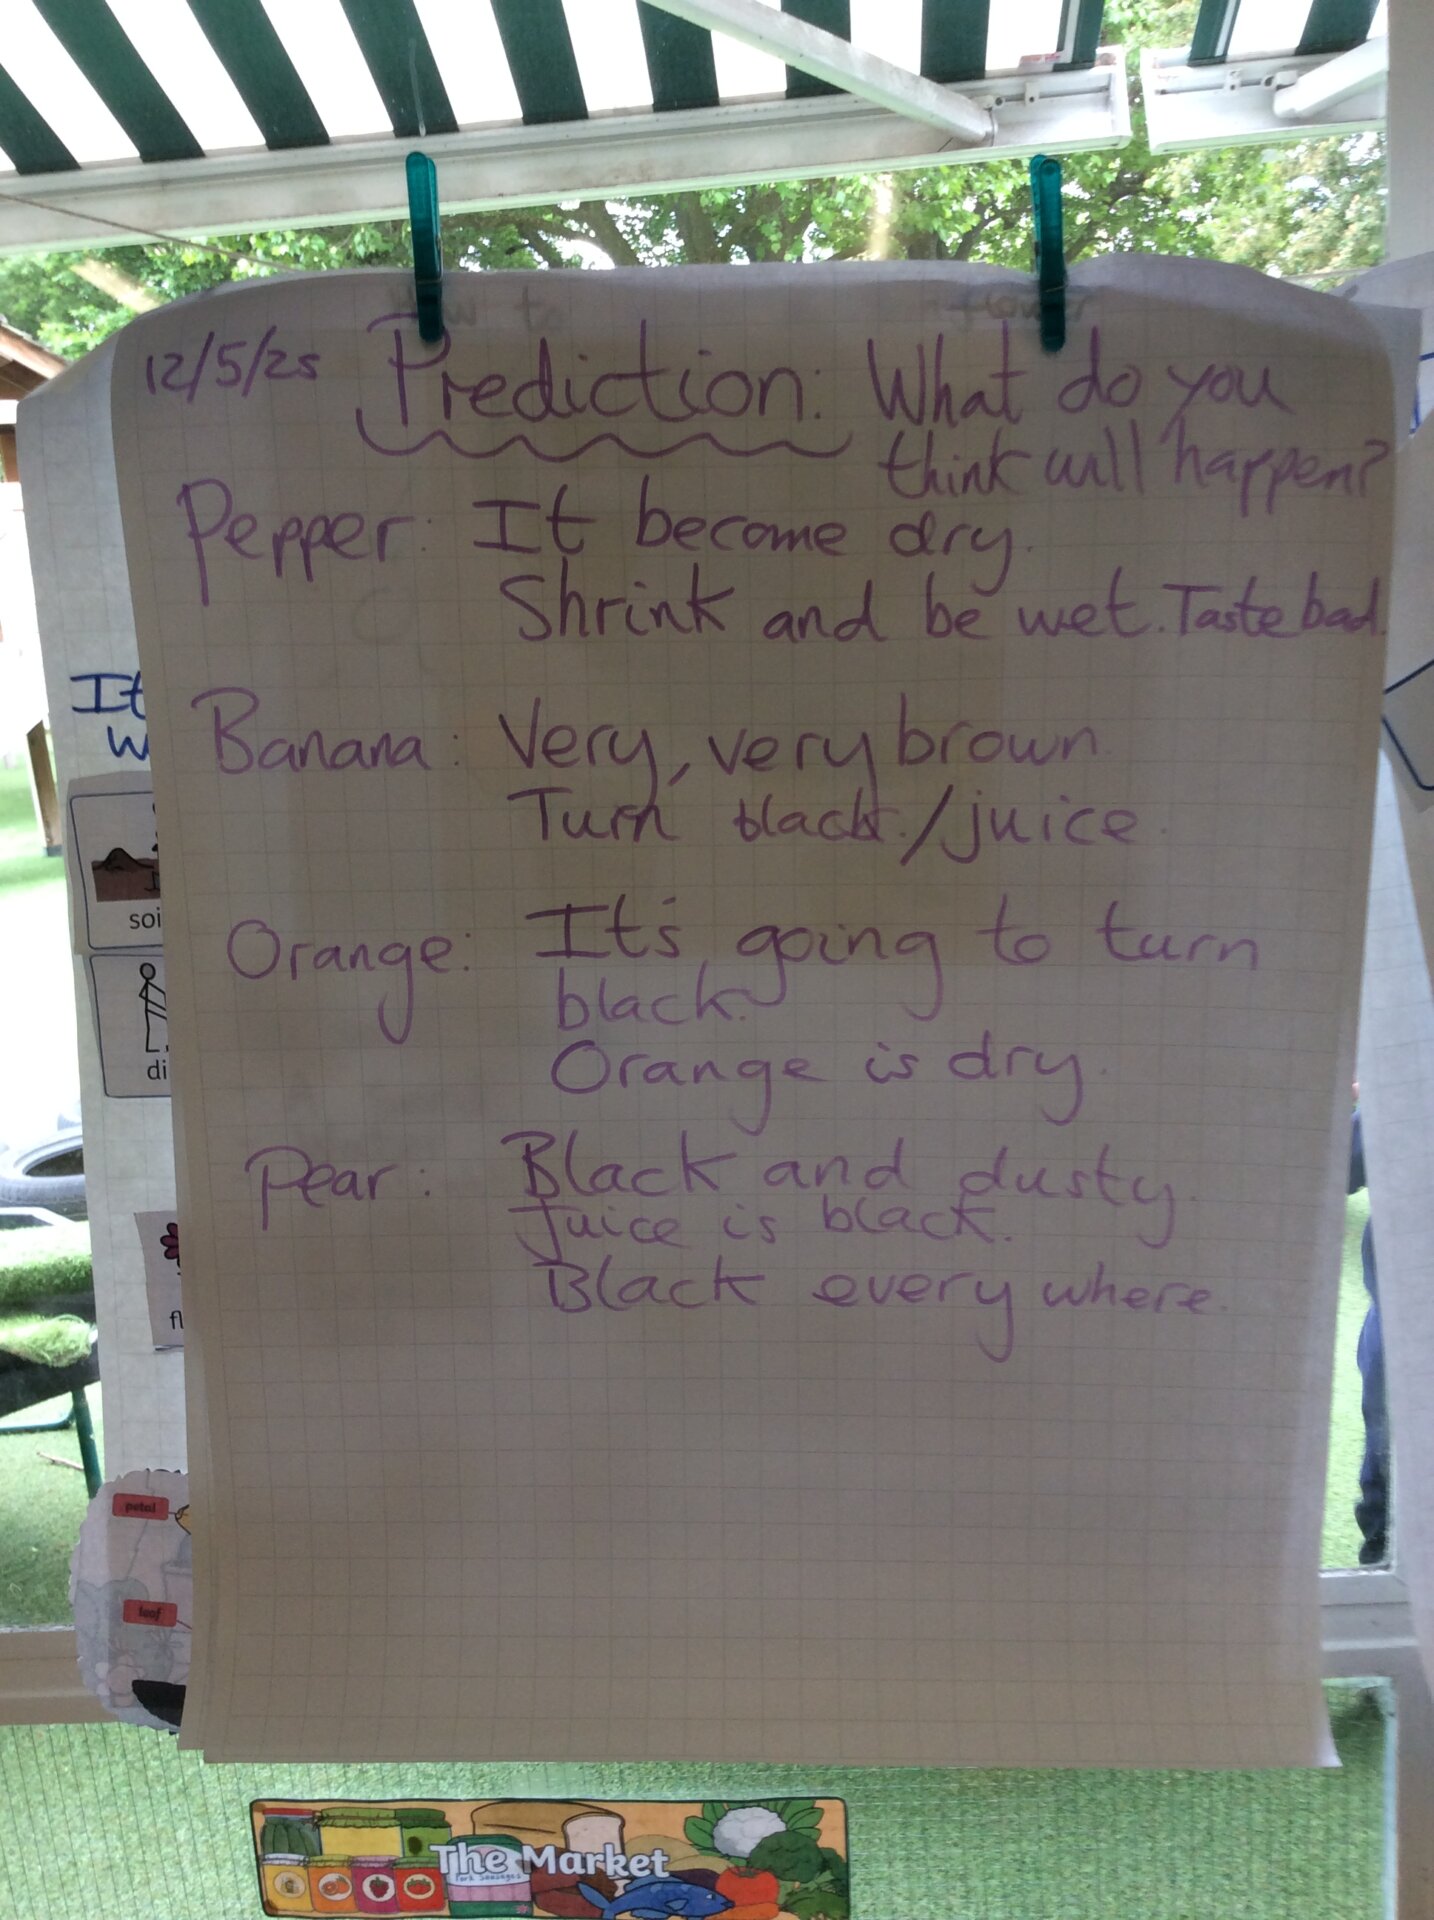 12/5/25 Prediction: What do you
think will happen?
Pepper: It become dry.
Shrink and be wet. Taste bad.
Banana: Very, very brown.
Turn black./juice.
Orange: It's going to turn
black.
Orange is dry.
Pear: Black and dusty.
Juice is black.
Black every where.
It
w
soi
di
fl
petal
leaf
The Market
Pork Sausages